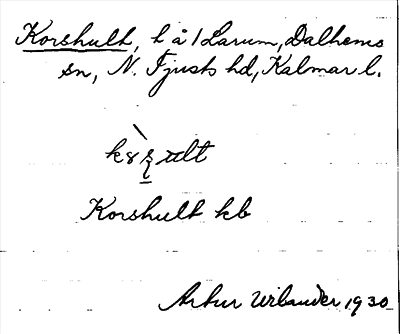 Korshult, t å 1 Larum, Dalhems
sn, N. Tjusts hd, Kalmar l.
Korshult kb
Artur Urbander 1930